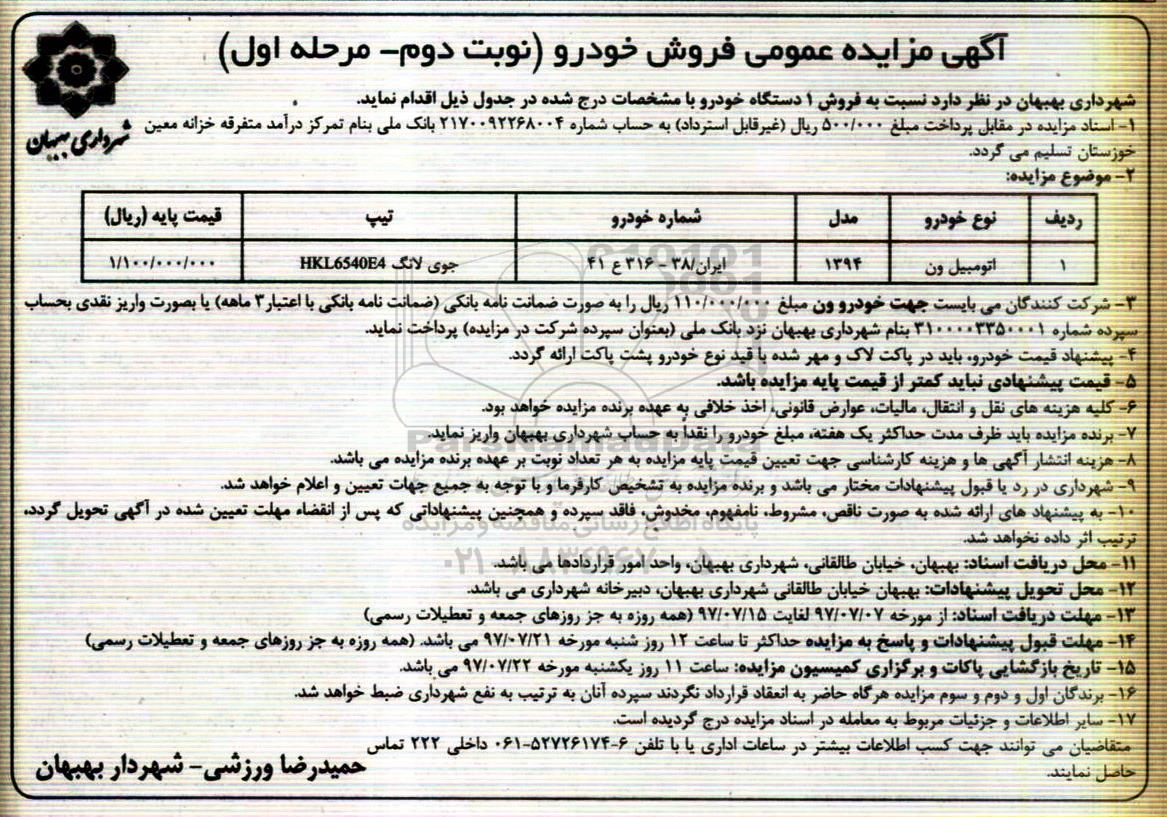 آگهی مزایده عمومی فروش خودرو (نوبت دوم- مرحله اول)
شهرداری بهبهان
شهرداری بهبهان در نظر دارد نسبت به فروش ۱ دستگاه خودرو با مشخصات درج شده در جدول ذیل اقدام نماید.
۱- اسناد مزایده در مقابل پرداخت مبلغ ۵۰۰/۰۰۰ ریال (غیرقابل استرداد) به حساب شماره ۲۱۷۰۰۹۲۲۶۸۰۰۴ بانک ملی بنام تمرکز درآمد متفرقه خزانه معین
خوزستان تسلیم می گردد.
۲- موضوع مزایده:
ردیف نوع خودرو مدل شماره خودرو تیپ قیمت پایه (ریال)
۱ اتومبیل ون ۱۳۹۴ ایران/۳۸ – ۳۱۶ ع ۴۱ جوی لانگ HKL6540E4 ۱/۱۰۰/۰۰۰/۰۰۰
۳- شرکت کنندگان می بایست جهت خودرو ون مبلغ ۱۱۰/۰۰۰/۰۰۰ ریال را به صورت ضمانت نامه بانکی (ضمانت نامه بانکی با اعتبار۳ ماهه) یا بصورت واریز نقدی بحساب
سپرده شماره ۳۱۰۰۰۰۳۳۵۰۰۰۱ بنام شهرداری بهبهان نزد بانک ملی (بعنوان سپرده شرکت در مزایده) پرداخت نماید.
۴- پیشنهاد قیمت خودرو، باید در پاکت لاک و مهر شده با قید نوع خودرو پشت پاکت ارائه گردد.
۵- قیمت پیشنهادی نباید کمتر از قیمت پایه مزایده باشد.
۶- کلیه هزینه های نقل و انتقال، مالیات، عوارض قانونی، اخذ خلافی به عهده برنده مزایده خواهد بود.
۷- برنده مزایده باید ظرف مدت حداکثر یک هفته، مبلغ خودرو را نقداً به حساب شهرداری بهبهان واریز نماید.
ParsNamadData
۸- هزینه انتشار آگهی ها و هزینه کارشناسی جهت تعیین قیمت پایه مزایده به هر تعداد نوبت بر عهده برنده مزایده می باشد.
۹- شهرداری در رد یا قبول پیشنهادات مختار می باشد و برنده مزایده به تشخیص کارفرما و با توجه به جمیع جهات تعیین و اعلام خواهد شد.
۱۰- به پیشنهاد های ارائه شده به صورت ناقص، مشروط، نامفهوم، مخدوش، فاقد سپرده و همچنین پیشنهاداتی که پس از انقضاء مهلت تعیین شده در آگهی تحویل گردد،
پایگاه اطلاع رسانی مناقصه و مزایده
ترتیب اثر داده نخواهد شد.
۱۱- محل دریافت اسناد: بهبهان، خیابان طالقانی، شهرداری بهبهان، واحد امور قراردادها می باشد.
۱۲- محل تحویل پیشنهادات: بهبهان خیابان طالقانی شهرداری بهبهان، دبیرخانه شهرداری می باشد.
۱۳- مهلت دریافت اسناد: از مورخه ۹۷/۰۷/۰۷ لغایت ۹۷/۰۷/۱۵ (همه روزه به جز روزهای جمعه و تعطیلات رسمی)
۱۴- مهلت قبول پیشنهادات و پاسخ به مزایده حداکثر تا ساعت ۱۲ روز شنبه مورخه ۹۷/۰۷/۲۱ می باشد. (همه روزه به جز روزهای جمعه و تعطیلات رسمی)
۱۵- تاریخ بازگشایی پاکات و برگزاری کمیسیون مزایده: ساعت ۱۱ روز یکشنبه مورخه ۹۷/۰۷/۲۲ می باشد.
۱۶- برندگان اول و دوم و سوم مزایده هرگاه حاضر به انعقاد قرارداد نگردند سپرده آنان به ترتیب به نفع شهرداری ضبط خواهد شد.
۱۷- سایر اطلاعات و جزئیات مربوط به معامله در اسناد مزایده درج گردیده است.
متقاضیان می توانند جهت کسب اطلاعات بیشتر در ساعات اداری با یا تلفن ۶-۵۲۷۲۶۱۷۴-۰۶۱ داخلی ۲۲۲ تماس
حاصل نمایند.
حمیدرضا ورزشی- شهردار بهبهان